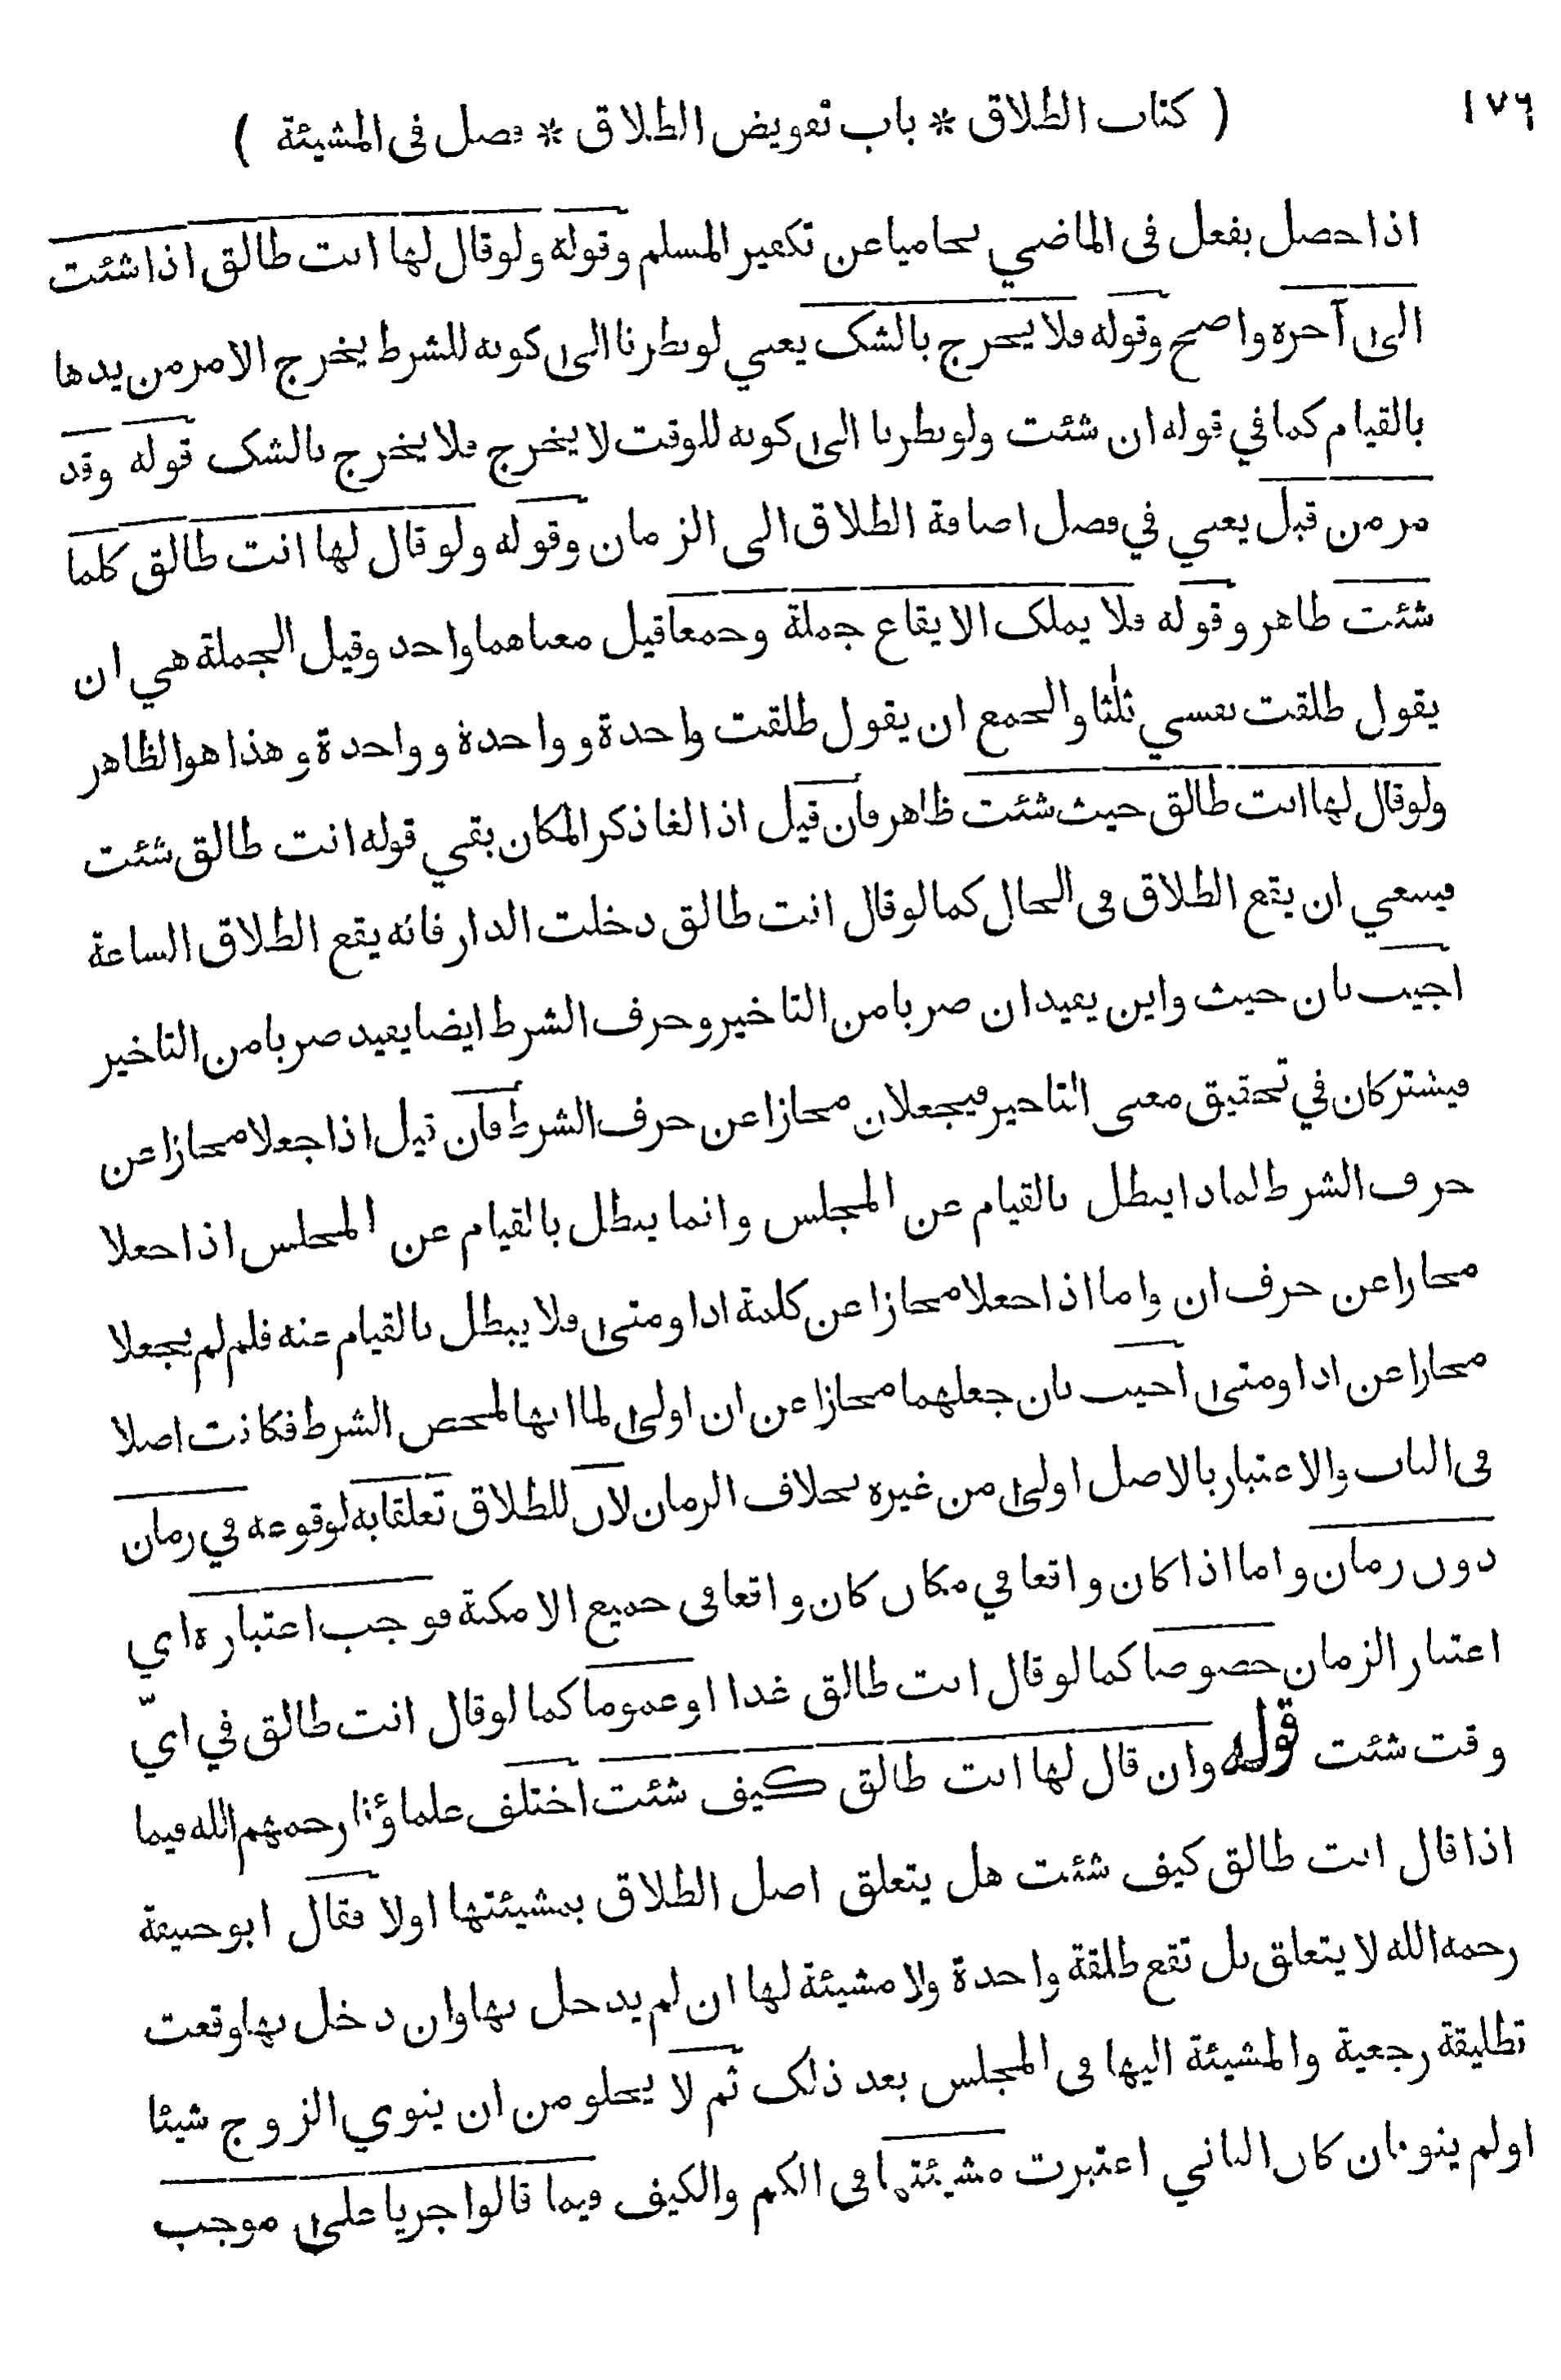 ١٧٦
( كتاب الطلاق * باب تفويض الطلاق * فصل فى المشيئة )
اذا حصل بفعل فى الماضي تحاميا عن تكفير المسلم وقوله ولو قال لها انت طالق اذا شئت
الى آخره واضح وقوله فلا يخرج بالشك يعني لو نظرنا الى كونه للشرط يخرج الامر من يدها
بالقيام كما في قوله ان شئت ولو نظرنا الى كونه للوقت لا يخرج فلا يخرج بالشك قوله وقد
مر من قبل يعني في فصل اضافة الطلاق الى الزمان وقوله ولو قال لها انت طالق كلما
شئت ظاهر وقوله فلا يملك الايقاع جملة وجمعا قيل معناهما واحد وقيل الجملة هي ان
يقول طلقت نفسي ثلثا والجمع ان يقول طلقت واحدة وواحدة وواحدة وهذا هو الظاهر
ولو قال لها انت طالق حيث شئت ظاهر فان قيل اذا الغا ذكر المكان بقي قوله انت طالق شئت
فينبغي ان يقع الطلاق فى الحال كما لو قال انت طالق دخلت الدار فانه يقع الطلاق الساعة
اجيب بان حيث واين يفيدان ضربا من التاخير وحرف الشرط ايضا يفيد ضربا من التاخير
فيشتركان في تحقيق معنى التاخير فيجعلان مجازا عن حرف الشرط فان قيل اذا جعلا مجازا عن
حرف الشرط لماذا يبطل بالقيام عن المجلس وانما يبطل بالقيام عن المجلس اذا جعلا
مجازا عن حرف ان واما اذا جعلا مجازا عن كلمة اذا ومتى فلا يبطل بالقيام عنه فلم لم يجعلا
مجازا عن اذا ومتى اجيب بان جعلهما مجازا عن ان اولى لما انها لمحض الشرط فكانت اصلا
فى الباب والاعتبار بالاصل اولى من غيره بخلاف الزمان لان للطلاق تعلقا به لوقوعه في زمان
دون زمان واما اذا كان واقعا في مكان كان واقعا فى جميع الامكنة فوجب اعتباره اي
اعتبار الزمان خصوصا كما لو قال انت طالق غدا او عموما كما لو قال انت طالق في ايّ
وقت شئت قوله وان قال لها انت طالق كيف شئت اختلف علماؤنا رحمهم الله فيما
اذا قال انت طالق كيف شئت هل يتعلق اصل الطلاق بمشيئتها اولا فقال ابو حنيفة
رحمه الله لا يتعلق بل تقع طلقة واحدة ولا مشيئة لها ان لم يدخل بها وان دخل بها وقعت
تطليقة رجعية والمشيئة اليها فى المجلس بعد ذلك ثم لا يخلو من ان ينوي الزوج شيئا
اولم ينو فان كان الثاني اعتبرت مشيئتها فى الكم والكيف فيما قالوا جريا على موجب